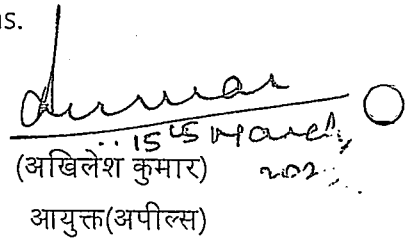 ns.
15th March,
(अखिलेश कुमार)
आयुक्त(अपील्स)